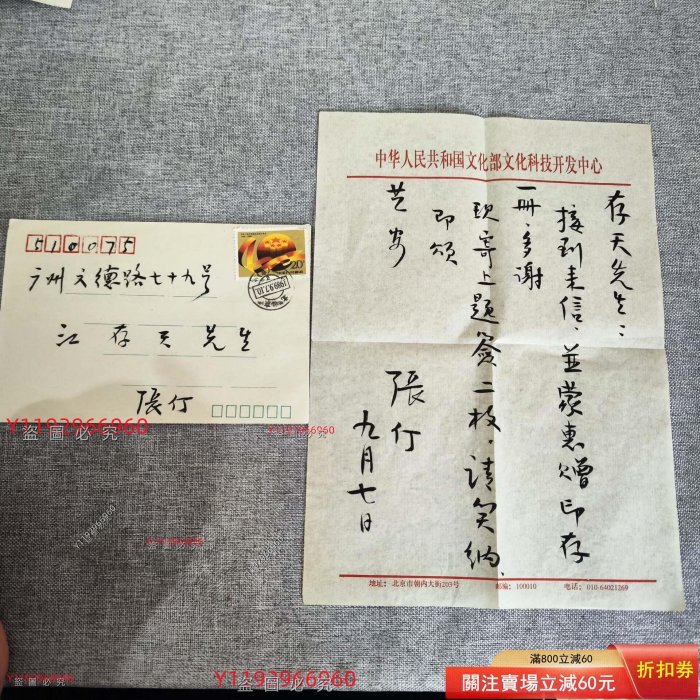 510075
20
1989.9.7.10
广州文德路七十九号
江存天先生
張仃
中华人民共和国文化部文化科技开发中心
存天先生：
接到来信、並蒙惠赠印存
一册、多谢
现寄上题簽二枚、请笑纳、
即颂
艺安
張仃
九月七日
地址：北京市朝内大街203号
邮编：100010
电话：010-64021269
Y1192966960
盜圖必究
Y1192966960
盜圖必究
Y1192966960
盜圖必究
Y1192966960
盜圖必究
滿800立減60
關注賣場立減60元
折扣券